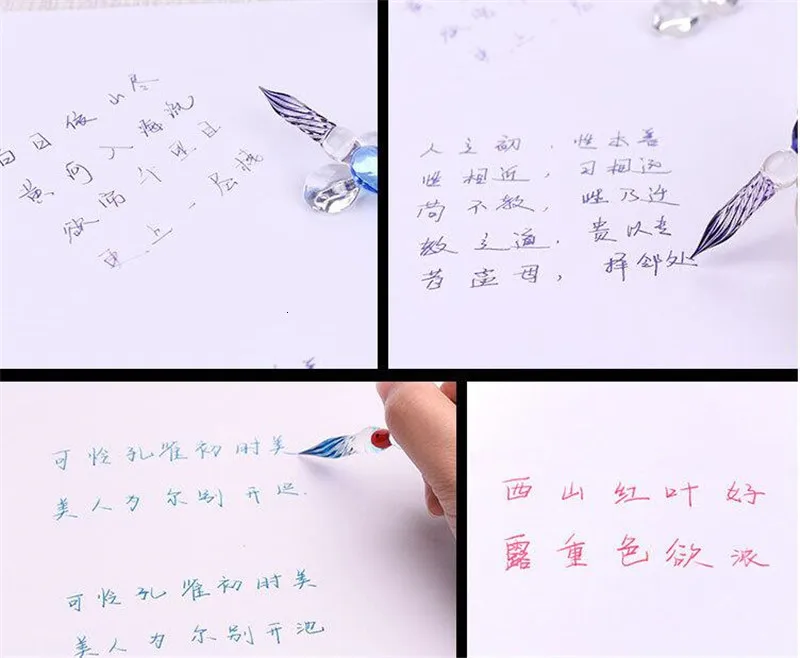 白日依山尽
黄河入海流
欲穷千里目
更上一层楼
人之初，性本善
性相近，习相远
苟不教，性乃迁
教之道，贵以专
昔孟母，择邻处
可怜孔雀初时美
美人为尔别开池
可怜孔雀初时美
美人为尔别开池
西山红叶好
露重色欲浓